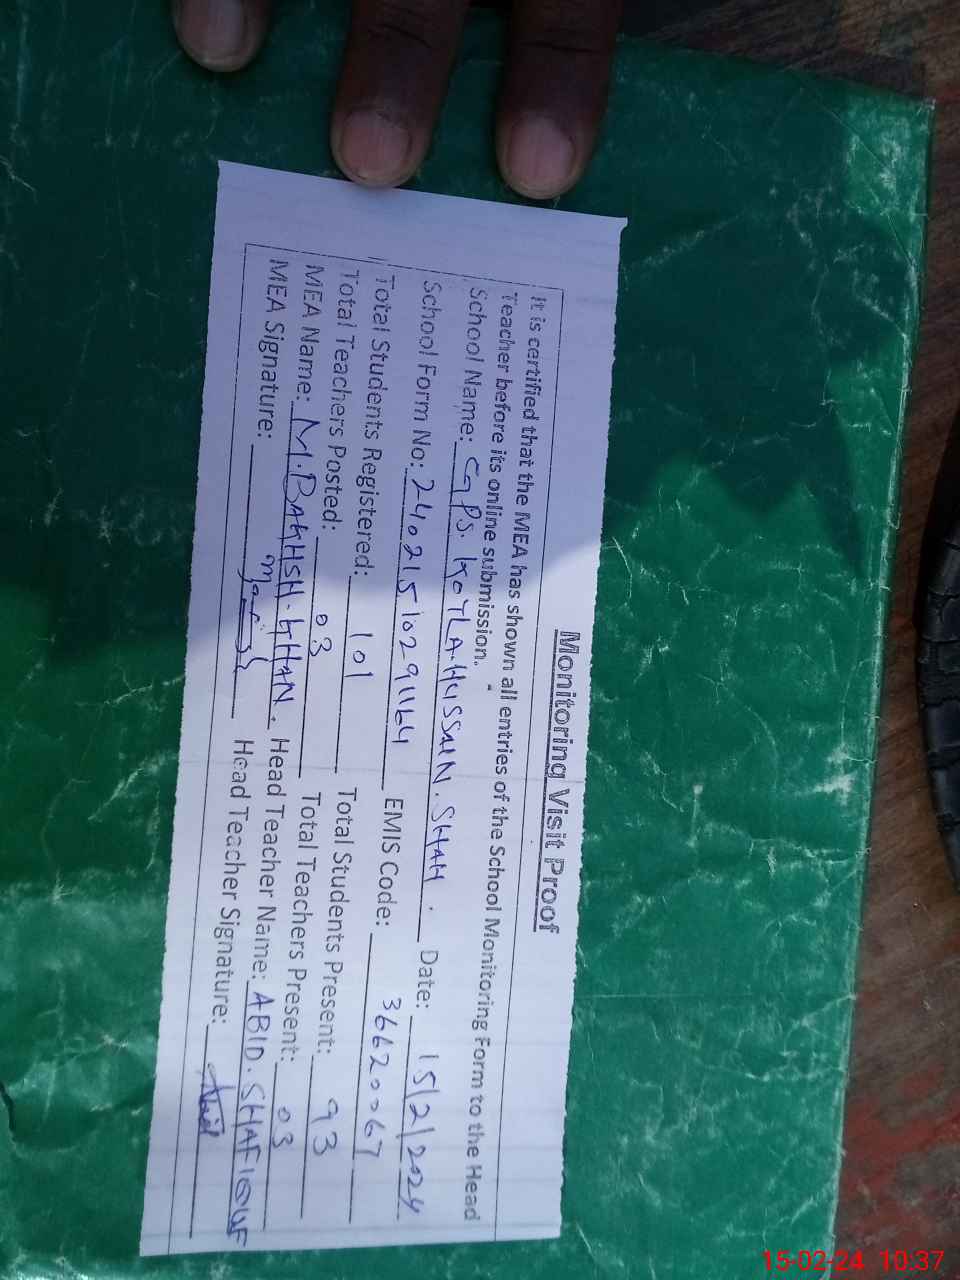 Monitoring Visit Proof
It is certified that the MEA has shown all entries of the School Monitoring Form to the Head
Teacher before its online submission.
School Name: GPS. KOTLA HUSSAIN. SHAH. Date: 15/2/2024
School Form No: 24021510291164 EMIS Code: 36620067
Total Students Registered: 101 Total Students Present: 93
Total Teachers Posted: 03 Total Teachers Present: 03
MEA Name: M. BAKHSH. KHAN. Head Teacher Name: ABID. SHAFIQUE
MEA Signature: Head Teacher Signature: Abid
15-02-24 10:37